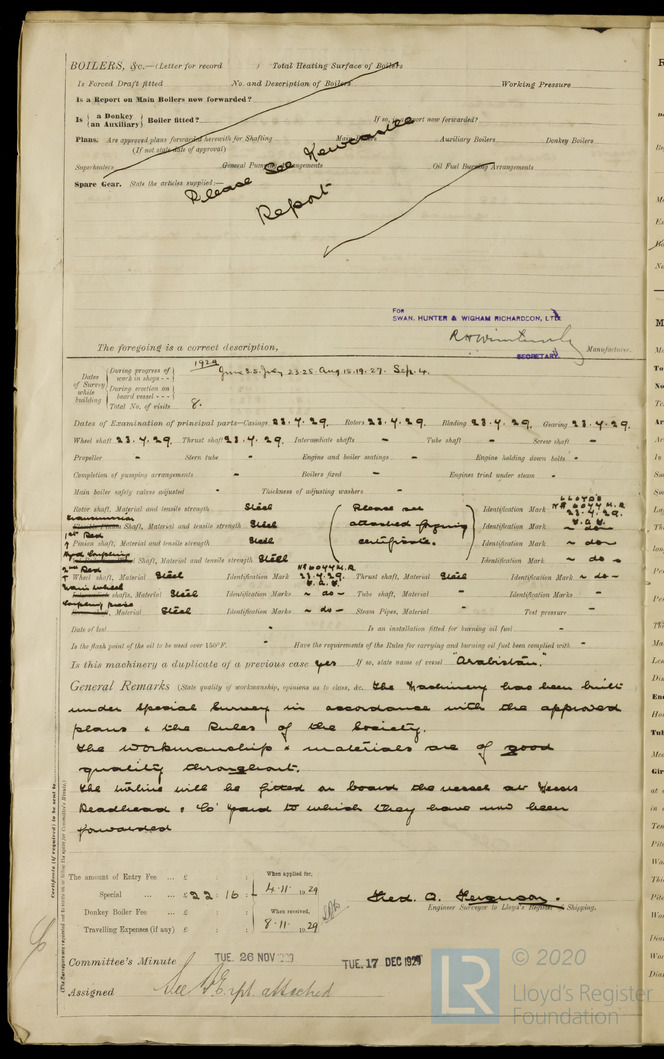 BOILERS, &c.—(Letter for record ) Total Heating Surface of Boilers
Is Forced Draft fitted No. and Description of Boilers Working Pressure
Is a Report on Main Boilers now forwarded?
Is {a Donkey / an Auxiliary} Boiler fitted? If so, is a report now forwarded?
Plans. Are approved plans forwarded herewith for Shafting Main Boilers Auxiliary Boilers Donkey Boilers
(If not state date of approval)
Superheaters General Pumping Arrangements Oil Fuel Burning Arrangements
Spare Gear. State the articles supplied:—
Please see Newcastle
Report
FOR
SWAN, HUNTER & WIGHAM RICHARDSON, LTD.
SECRETARY.
The foregoing is a correct description, Manufacturer.
Dates of Survey while building
During progress of work in shops - - 1929 June 25. July 23.25. Aug 15.19.27. Sep. 4.
During erection on board vessel - - -
Total No. of visits 8.
Dates of Examination of principal parts—Casings 23.7.29. Rotors 23.7.29. Blading 23.7.29. Gearing 23.7.29.
Wheel shaft 23.7.29. Thrust shaft 23.7.29. Intermediate shafts - Tube shaft - Screw shaft -
Propeller - Stern tube - Engine and boiler seatings - Engine holding down bolts -
Completion of pumping arrangements - Boilers fixed - Engines tried under steam -
Main boiler safety valves adjusted - Thickness of adjusting washers -
Rotor shaft, Material and tensile strength Steel Identification Mark LLOYDS No 6044 H.R 23.7.29.
Shaft, Material and tensile strength Steel Identification Mark ~ do ~
1st Red Pinion shaft, Material and tensile strength Steel Identification Mark ~ do ~
Shaft, Material and tensile strength Steel Identification Mark ~ do ~
(Please see
attached forging
certificate.)
2nd Red Wheel shaft, Material Steel Identification Mark No 6044 H.R. 23.7.29. Thrust shaft, Material Steel Identification Mark ~ do ~
Main wheel shafts, Material Steel Identification Marks ~ do ~ Tube shaft, Material - Identification Marks -
Material Steel Identification Marks ~ do ~ Steam Pipes, Material - Test pressure -
Date of test - Is an installation fitted for burning oil fuel -
Is the flash point of the oil to be used over 150°F. - Have the requirements of the Rules for carrying and burning oil fuel been complied with -
Is this machinery a duplicate of a previous case yes If so, state name of vessel "Arabistan".
General Remarks (State quality of workmanship, opinions as to class, &c. The Machinery has been built
under special survey in accordance with the approved
plans & the Rules of the Society.
The workmanship & materials are of good
quality throughout.
The turbine will be fitted on board the vessel at Messrs
Readhead & Co' yard to which they have now been
forwarded
Certificate (if required) to be sent to
(The Surveyors are requested not to write on or below the space for Committee's Minute.)
The amount of Entry Fee ... £ : : When applied for,
Special ... ... £ 22 : 16 : 4.11.1929
Donkey Boiler Fee ... £ : : When received,
Travelling Expenses (if any) £ : : 8.11.1929
Fred. A. Ferguson.
Engineer Surveyor to Lloyd's Register of Shipping.
Committee's Minute TUE. 26 NOV 1929 TUE. 17 DEC 1929
Assigned See F.E. rpt. attached
LR © 2020
Lloyd's Register
Foundation